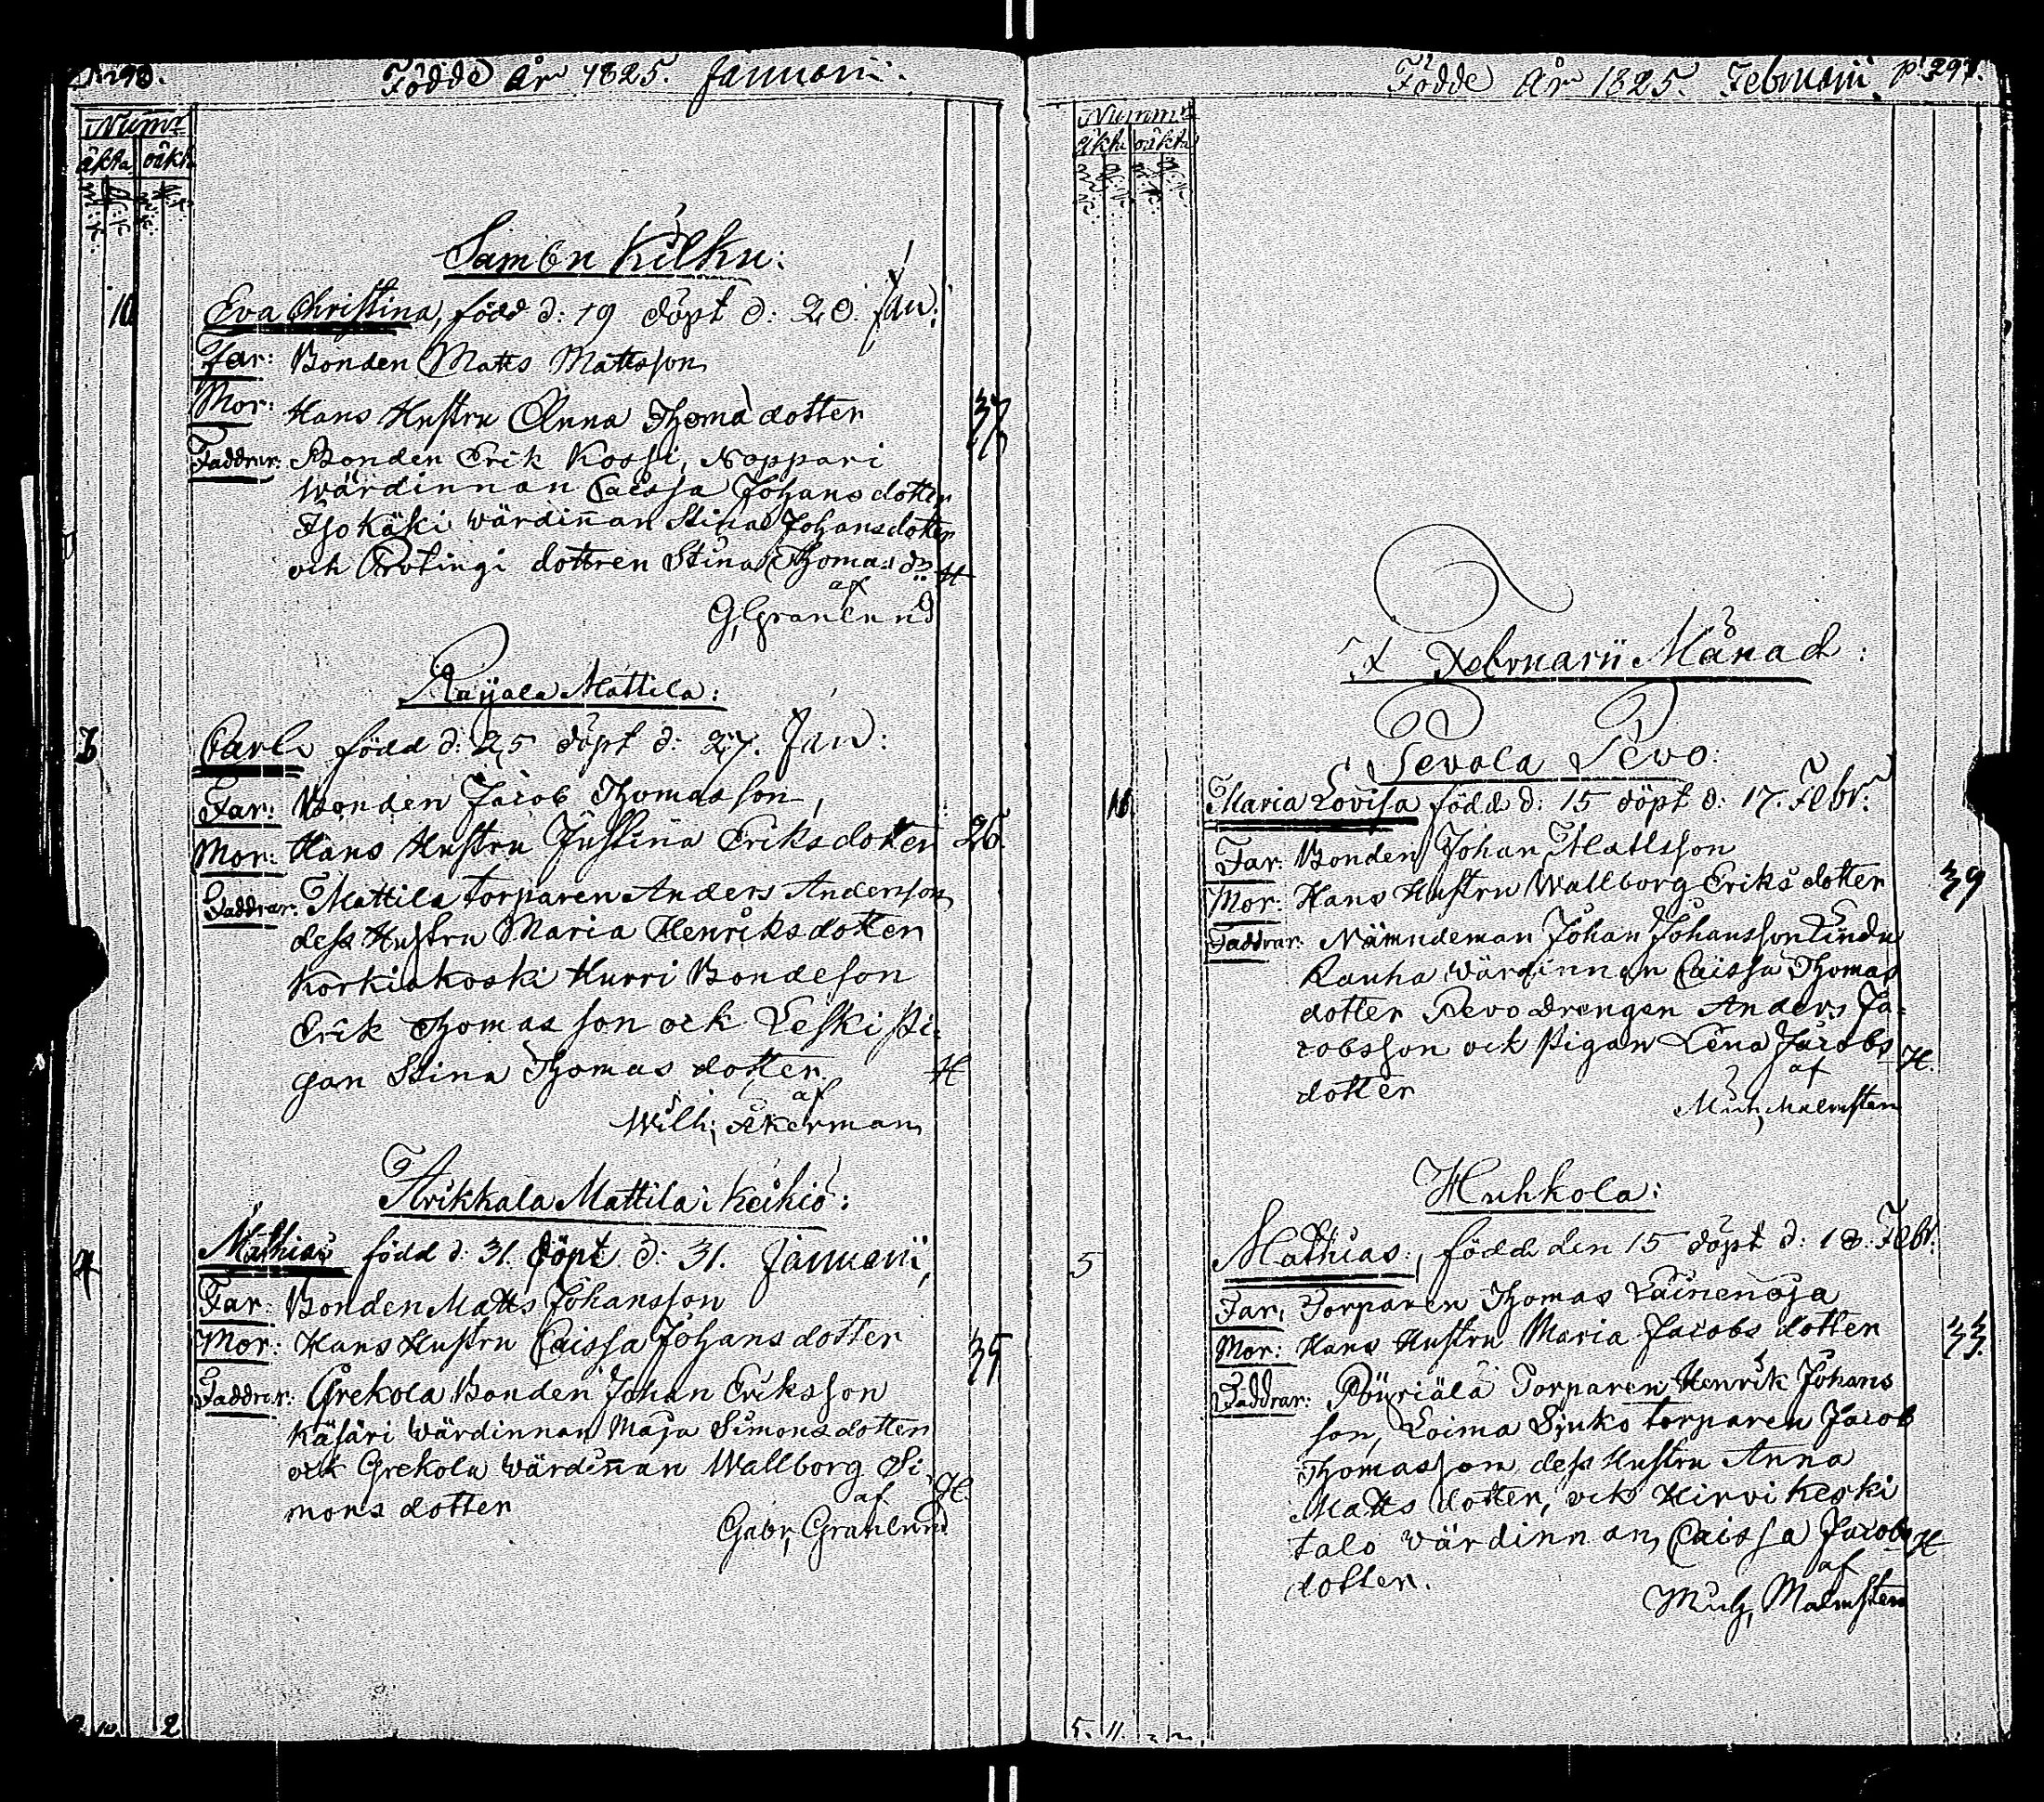 Födde År 1825. Januarii.
Numr
äkta oäkta
Samon Kilku:
10 Eva Christina, född d: 19 döpt d: 20. Jan:
Far: Bonden Matts Mattsson
Mor: Hans Hustru Anna Thomä dotter 37
Faddrar: Bonden Erik Kossi, Noppari
wärdinnan Caissa Johans dotter
Iso Käki wärdinnan Stina Johansdotter
och Protingi dottren Stina Thomas dr H
af
G, Granlund
Raijala Mattila:
3 Carl född d: 25 döpt d: 27. Jan:
Far: Bonden Jacob Thomasson,
Mor: Hans Hustru Justina Eriksdotter 26.
Faddrar: Mattila torparen Anders Andersson
dess Hustru Maria Henriksdotter
Korkiakoski Hurri Bondeson
Erik Thomasson och Leski Pi-
gan Stina Thomas dotter H
af
Wilh; Åkerman
Arikkala Mattila i Keikiö:
4 Mathias född d: 31. döpt d: 31. Januarii,
Far: Bonden Matts Johansson
Mor: Hans Hustru Caissa Johans dotter 35
Faddrar: Grekola Bonden Johan Eriksson
Käfäri wärdinnan Maja Simons dotter
och Grekola wärdinnan Wallborg Si-
mons dotter af H.
Gabr, Granlund
2
Födde År 1825. Februarii. p. 291.
Nummr
äkta oäkta
Februarii Månad:
Pevola Pevo:
11. Maria Lovisa född d: 15 döpt d: 17. Febr:
Far: Bonden Johan Mattsson
Mor: Hans Hustru Wallborg Eriks dotter 39
Faddrar: Nämndeman Johan Johansson Lindu
Rauha wärdinnan Caissa Thomas
dotter Pevo drengen Anders Ja-
cobsson och Pigan Lena Jacobs H.
dotter af
Mich, Malmsten
Huhkola:
5 Mathias, född den 15 döpt d: 18. Febr.
Far: Torparen Thomas Lainenoja
Mor: Hans Hustru Maria Jacobs dotter 33.
Faddrar: Pöyriälä Torparen Henrik Johans
son, Loima Sjuko torparen Jacob
Thomasson, dess Hustru Anna
Matts dotter, och Hirvikoski
talo wärdinnan, Caissa Jacobs H
dotter. af
Mich, Malmsten
5. 11.